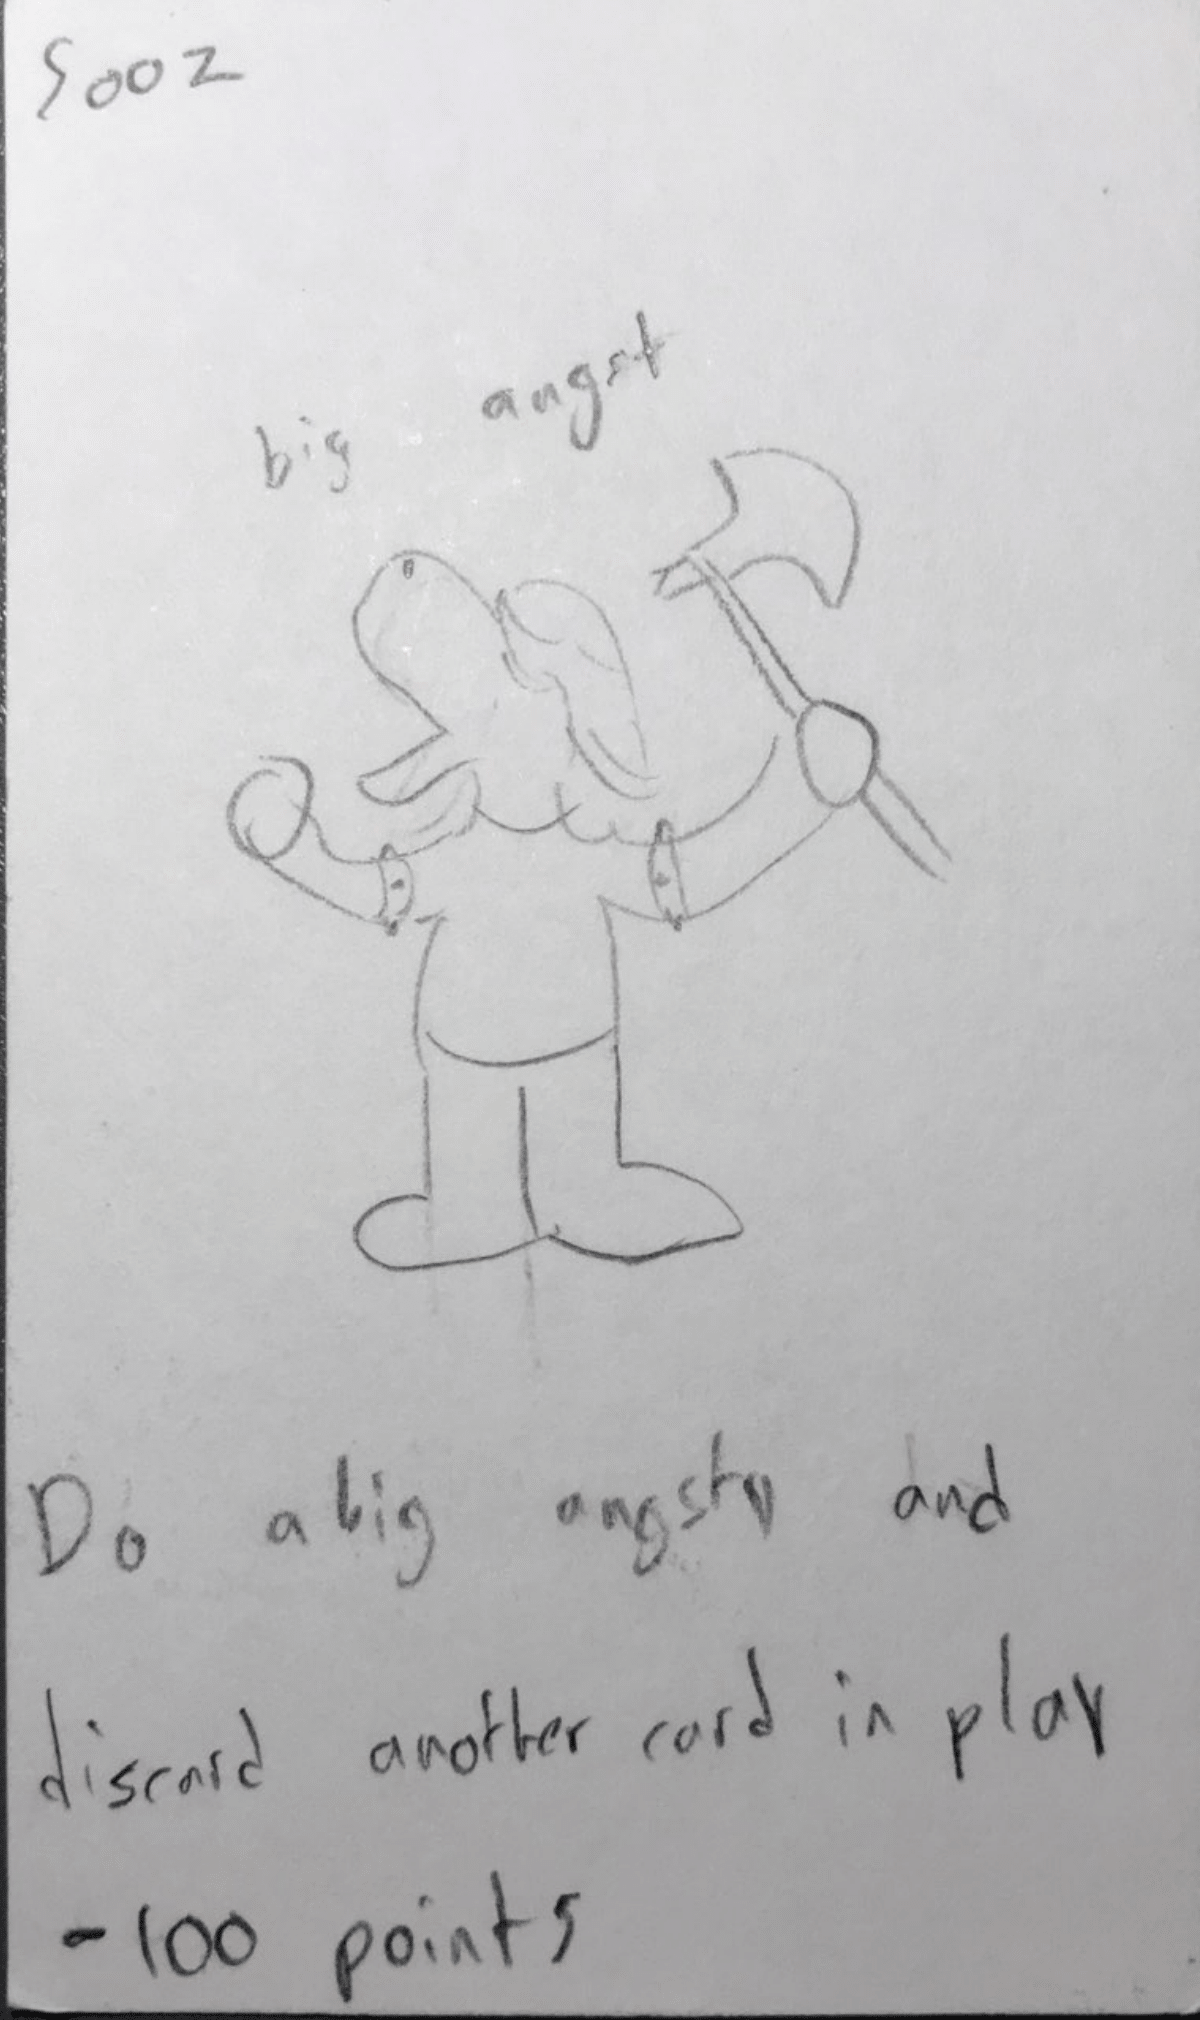 Sooz
big angst
Do a big angsty and
discard another card in play
-100 points